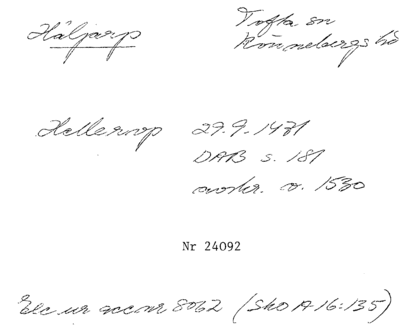 Häljarp
Tofta sn
Rönnebergs hd
Hellerup 29.9.1471
DAB s. 181
avskr. o. 1530
Nr 24092
Exc. ur acc nr 8062 (Sko A 16:135)